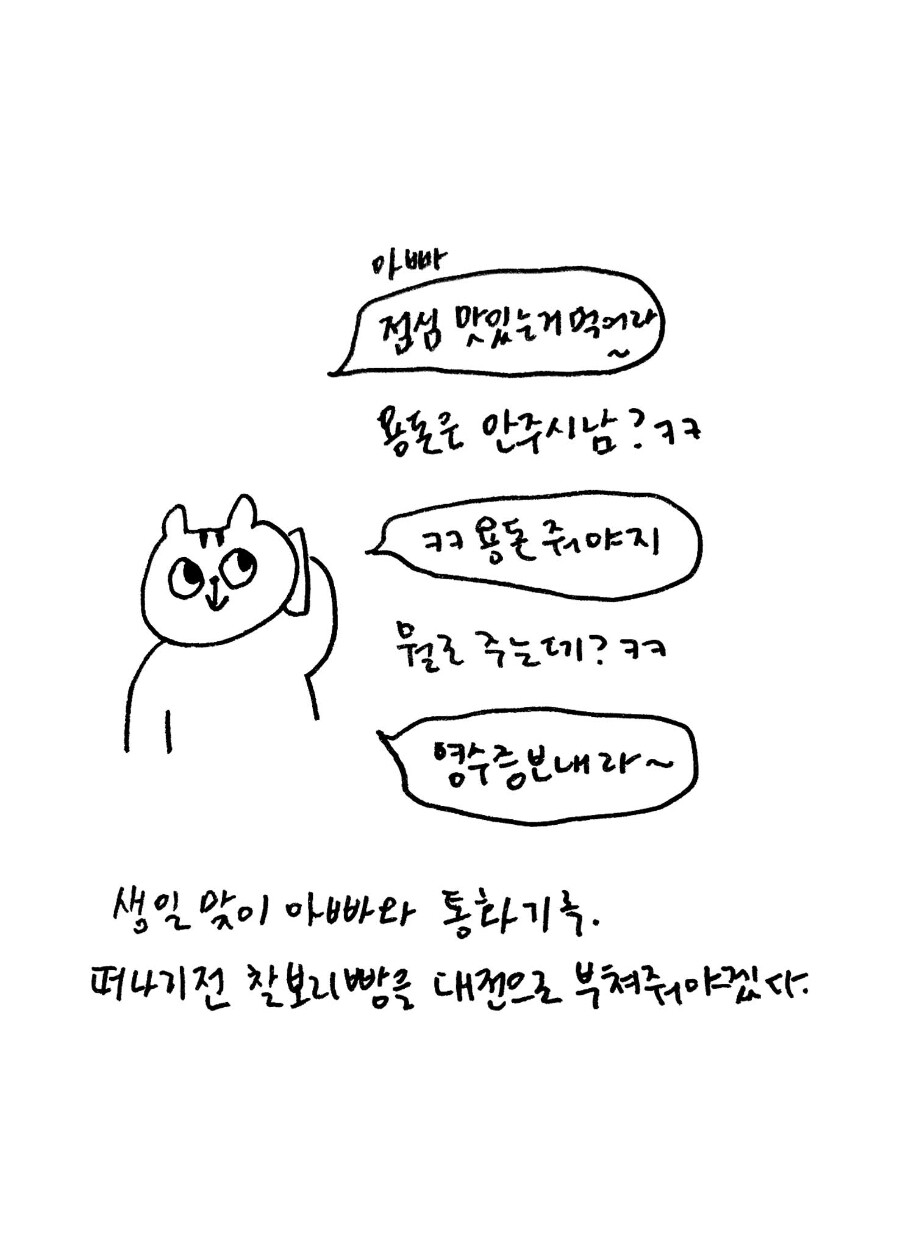 아빠
점심 맛있는거 먹어라
~
용돈은 안주시남? ㅋㅋ
ㅋㅋ 용돈 줘야지
뭘로 주는데? ㅋㅋ
영수증보내라~
생일 맞이 아빠와 통화기록.
떠나기전 찰보리빵을 대전으로 부쳐줘야겠다.